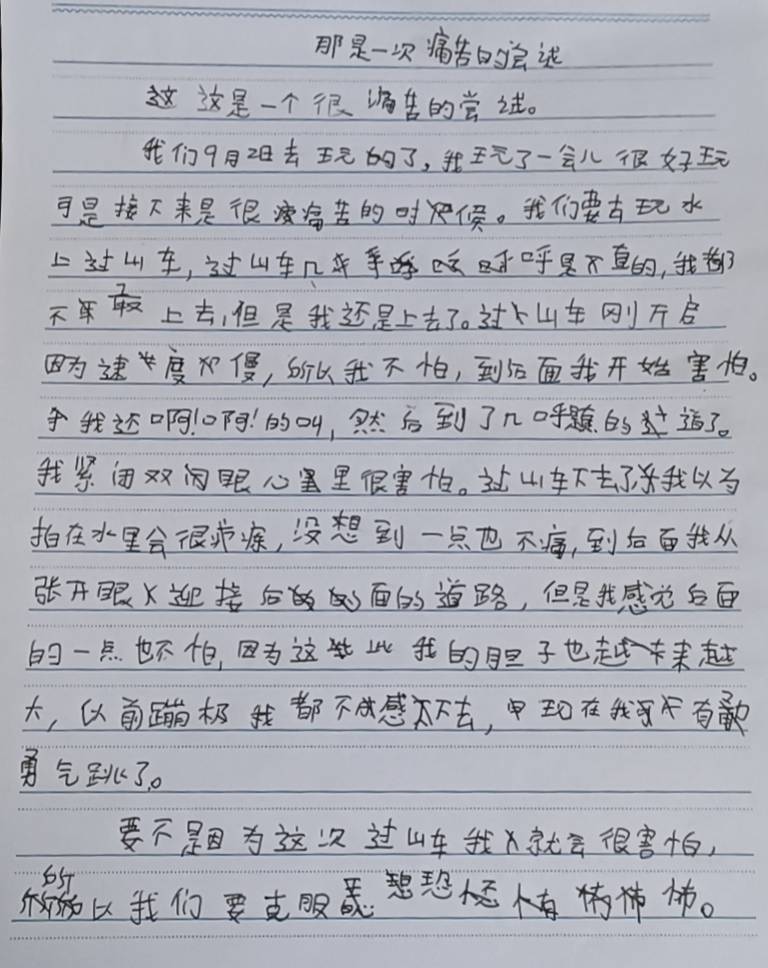 那是一次痛苦的尝试
这 这是一个很痛苦的尝试。
我们9月2日去玩的了，我玩了一会儿很好玩
可是接下来是很痛苦的时候。我们要去玩水
上过山车，过山车几乎是垂直的，我都
不敢上去，但是我还是上去了。过山车刚开启
因为速度慢，所以我不怕，到后面我开始害怕。
我还啊！啊！的叫，然后到了几乎的过道了。
我紧闭双眼心里很害怕。过山车下去了我以为
拍在水里会很疼，没想到一点也不痛，到后面我从
张开眼迎接后面的道路，但是我感觉后面
的一点也不怕，因为这此我的胆子也越来越
大，以前蹦极我都不敢下去，现在我有
勇气跳了。
要不是因为这次过山车我就会很害怕，
所以我们要克服恐怖。